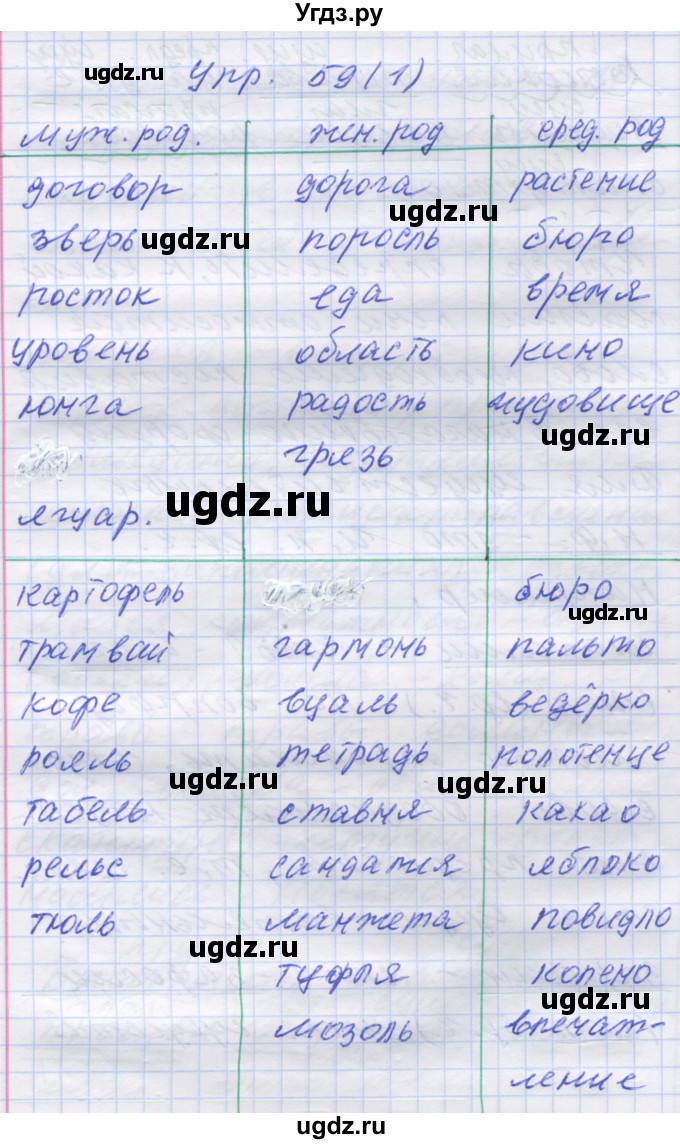 Угдз.ру
ugdz.ru Упр. 59(1)
муж.род. жен.род сред. род
договор дорога растение
ugdz.ru
зверь ugdz.ru поросль бюро
росток еда время
уровень область кино
юнга радость чудовище
ugdz.ru
грязь
ugdz.ru
ягуар.
картофель бюро
ugdz.ru
трамвай гармонь пальто
кофе вуаль ведёрко
рояль тетрадь полотенце
ugdz.ru ugdz.ru
табель ставня какао
рельс сандалия яблоко
тюль манжета повидло
ugdz.ru
туфля колено
ugdz.ru
мозоль впечат-
ление
ugdz.ru